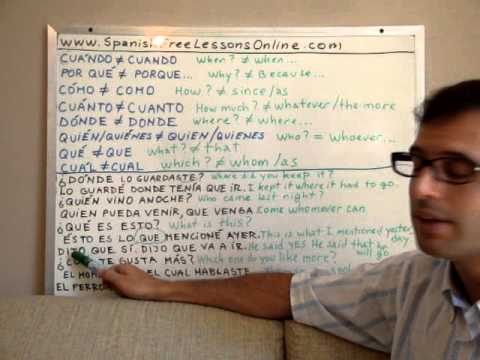 www.SpanishFreeLessonsOnline.com
CUÁNDO ≠ CUANDO When? ≠ when...
POR QUÉ ≠ PORQUE... Why? ≠ Because...
CÓMO ≠ COMO How? ≠ since/as
CUÁNTO ≠ CUANTO How much? ≠ whatever/the more
DÓNDE ≠ DONDE where? ≠ where...
QUIÉN/QUIÉNES ≠ QUIEN/QUIENES who? = whoever...
QUÉ ≠ QUE what? ≠ that
CUÁL ≠ CUAL which? ≠ whom/as
¿DÓNDE LO GUARDASTE? Where did you keep it?
LO GUARDÉ DONDE TENÍA QUE IR. I kept it where it had to go.
¿QUIÉN VINO ANOCHE? Who came last night?
QUIEN PUEDA VENIR, QUE VENGA Come whomever can
¿QUÉ ES ESTO? What is this?
ESTO ES LO QUE MENCIONÉ AYER. This is what I mentioned yesterday
DIJO QUE SÍ. DIJO QUE VA A IR. He said YES He said that he will go
TE GUSTA MÁS? Which one do you like more?
EL EL CUAL HABLASTE
EL PERRO